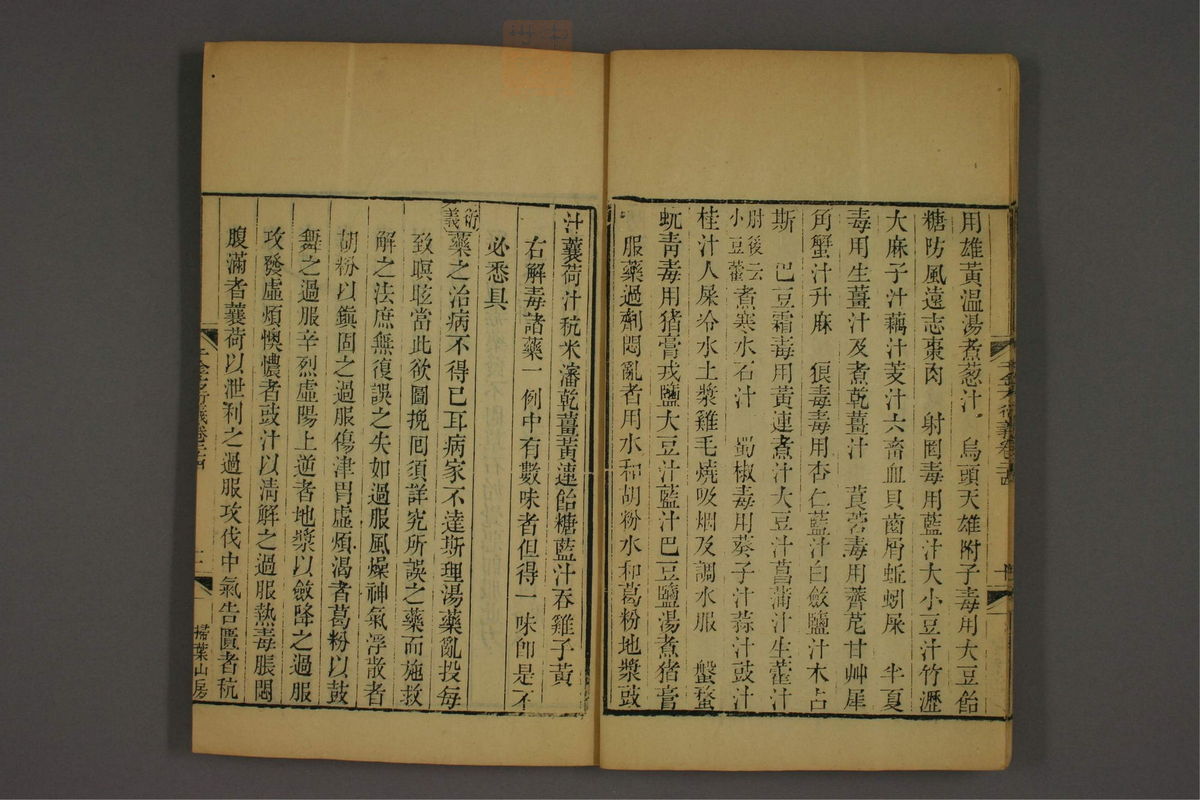 用雄黃溫湯煮葱汁　烏頭天雄附子毒用大豆飴
糖防風遠志棗肉　射罔毒用藍汁大小豆汁竹瀝
大麻子汁藕汁芰汁六畜血貝齒屑蚯蚓屎　半夏
毒用生薑汁及煮乾薑汁　莨菪毒用薺苨甘艸犀
角蟹汁升麻　俍毒毒用杏仁藍汁白斂鹽汁木占
斯　巴豆霜毒用黃連煮汁大豆汁菖蒲汁生藿汁
肘後云
小豆藿
煮寒水石汁　蜀椒毒用葵子汁蒜汁豉汁
桂汁人屎冷水土漿雞毛燒吸烟及調水服　盤蝥
蚖青毒用猪膏戎鹽大豆汁藍汁巴豆鹽湯煮猪膏
服藥過劑悶亂者用水和胡粉水和葛粉地漿豉
汁蘘荷汁秔米瀋乾薑黃連飴糖藍汁吞雞子黃
右解毒諸藥一例中有數味者但得一味卽是不
必悉具
衍義
藥之治病不得已耳病家不達斯理湯藥亂投每
致瞑眩當此欲圖挽囘須詳究所誤之藥而施救
解之法庶無復誤之失如過服風燥神氣浮散者
胡粉以鎭固之過服傷津胃虛煩渴者葛粉以鼓
舞之過服辛烈虛陽上逆者地漿以斂降之過服
攻發虛煩懊憹者豉汁以淸解之過服熱毒脹悶
腹滿者蘘荷以泄利之過服攻伐中氣告匱者秔
掃葉山房